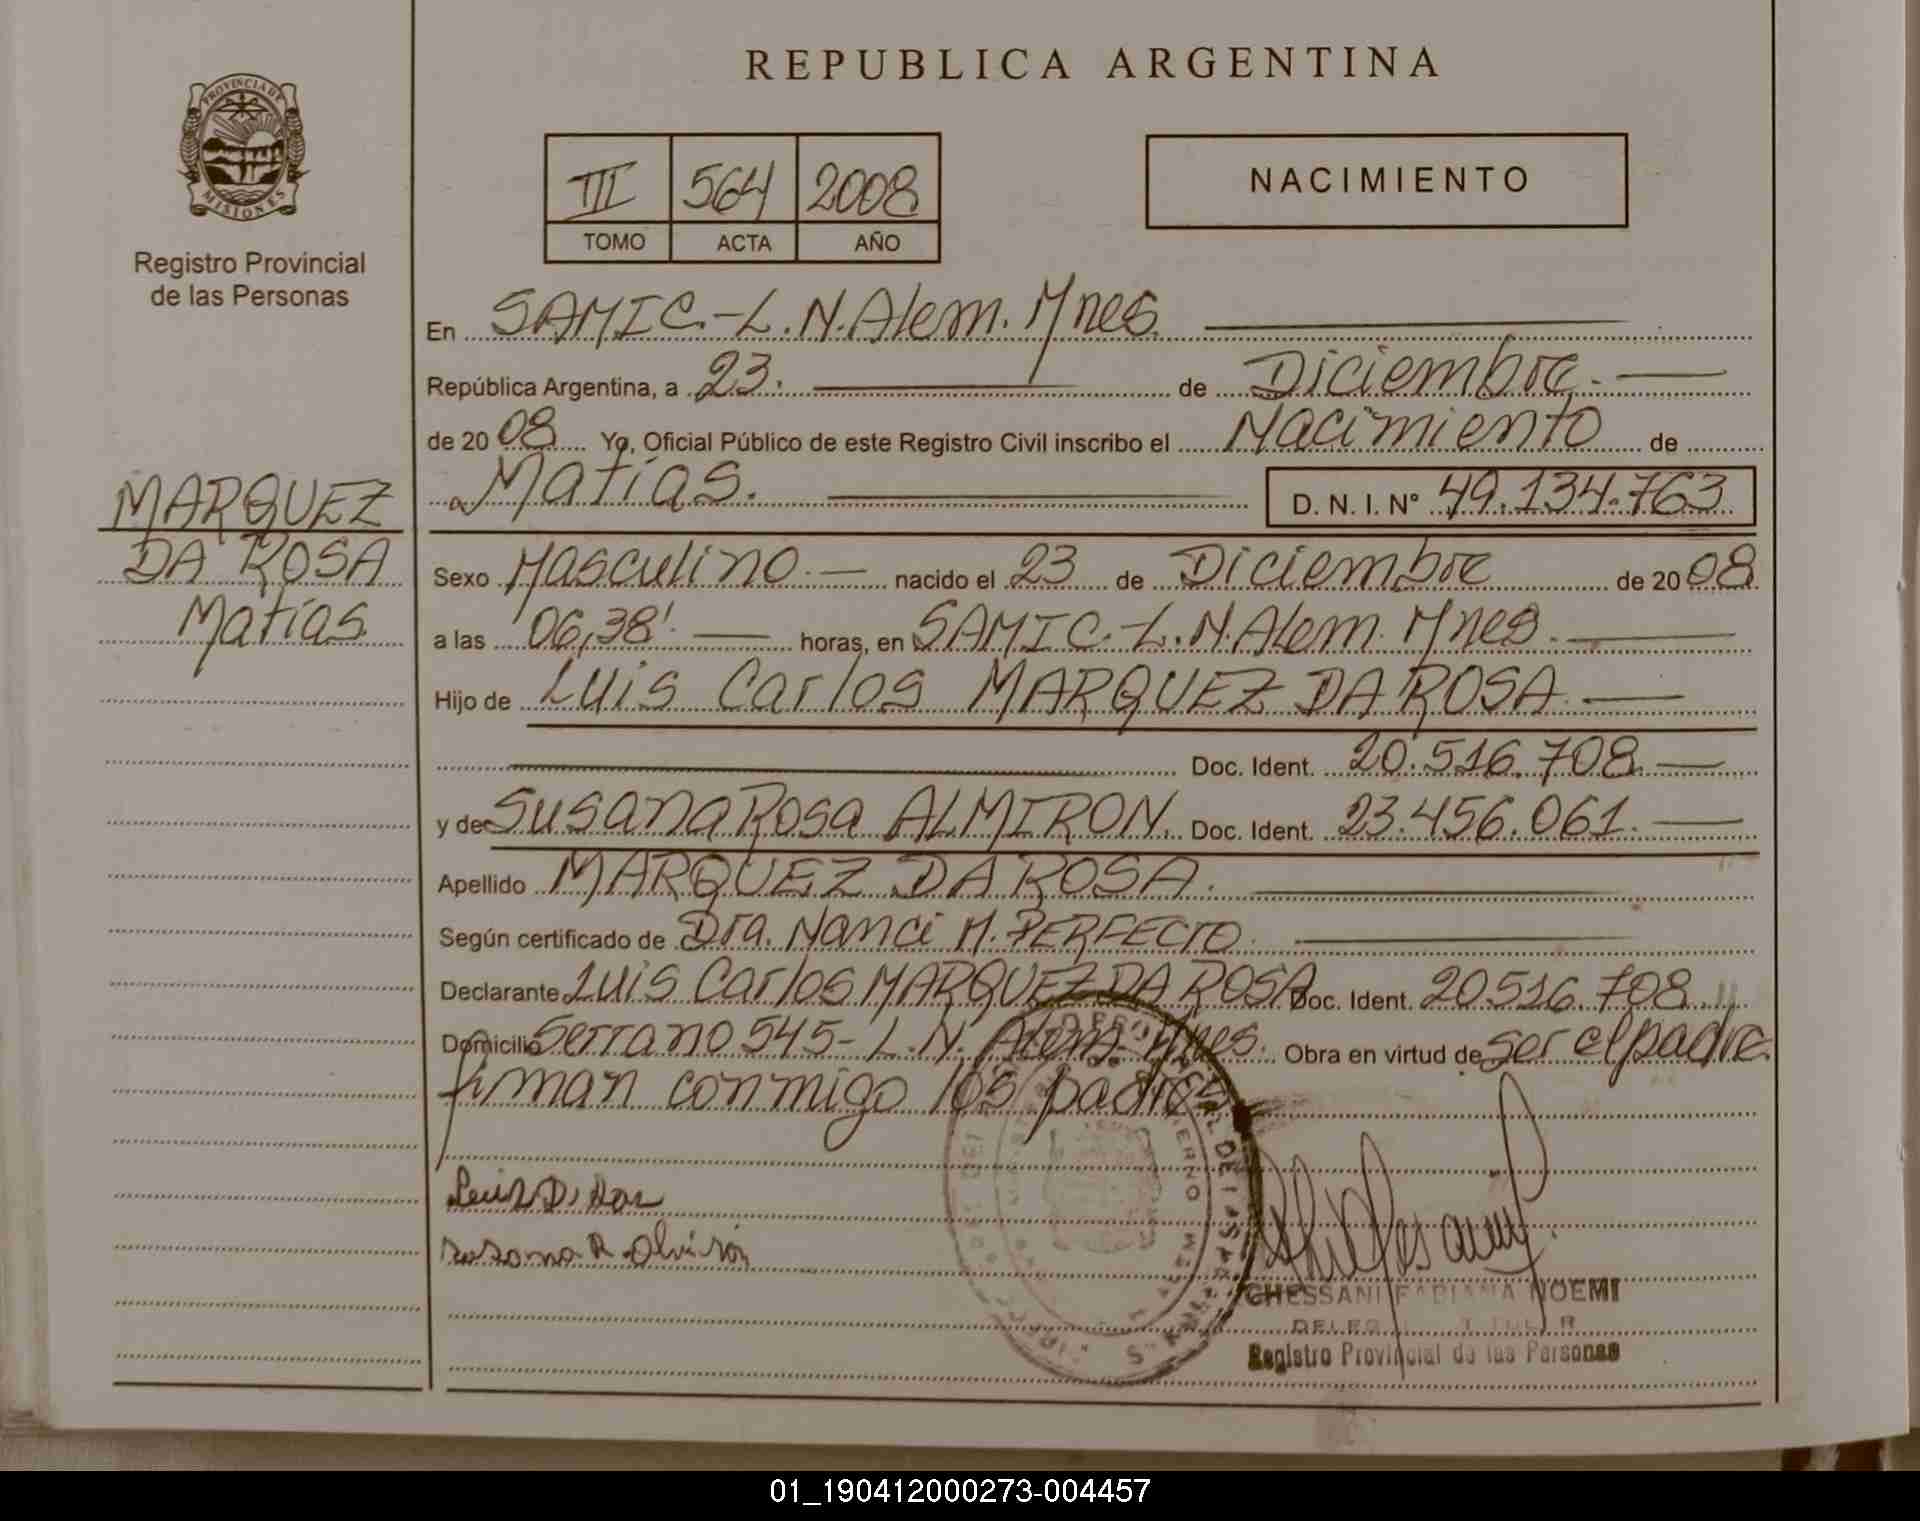 PROVINCIA DE
MISIONES
Registro Provincial
de las Personas
MARQUEZ
DA ROSA
Matías
REPUBLICA ARGENTINA
III 564 2008
TOMO ACTA AÑO
NACIMIENTO
En SAMIC.-L.N.Alem.Mnes.
República Argentina, a 23. de Diciembre.
de 2008 Yo, Oficial Público de este Registro Civil inscribo el Nacimiento de
a Matías. D. N. I. N° 49.134.763
Sexo Masculino. nacido el 23 de Diciembre de 2008
a las 06,38'. horas, en SAMIC.-L.N.Alem. Mnes.
Hijo de Luis Carlos MARQUEZ DA ROSA.
Doc. Ident. 20.516.708.
y de Susana Rosa ALMIRON. Doc. Ident. 23.456.061.
Apellido MARQUEZ DA ROSA.
Según certificado de Dra. Nanci M. PERFECTO.
Declarante Luis Carlos MARQUEZ DA ROSA Doc. Ident. 20.516.708
Domicilio Serrano 545- L.N. Alem. Mnes. Obra en virtud de ser el padre.
firman conmigo los padres
CHESSANI FABIANA NOEMI
Registro Provincial de las Personas
01_190412000273-004457